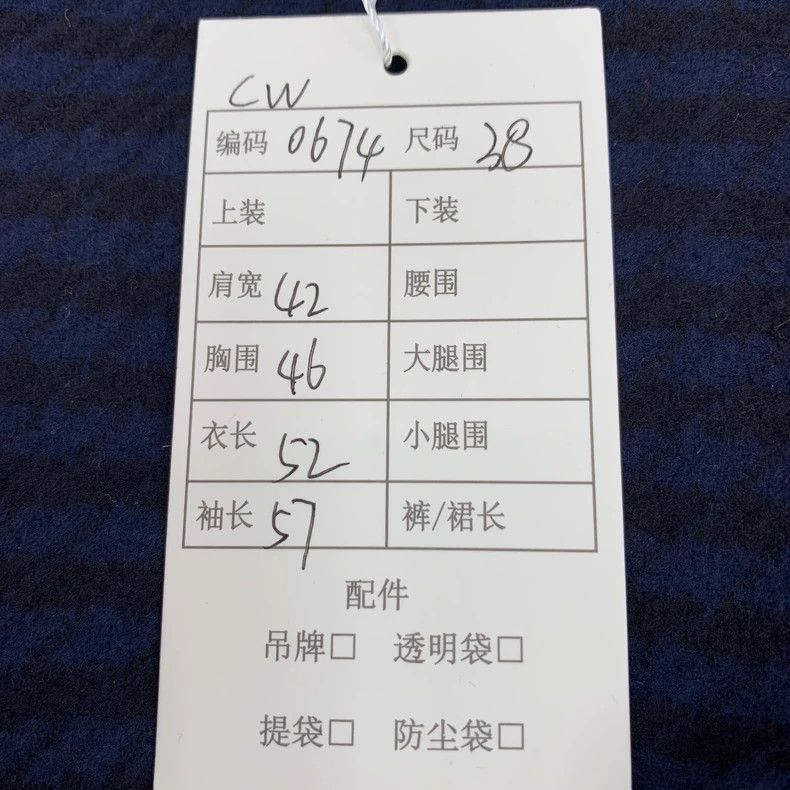 CW
编码 0674 尺码 38
上装 下装
肩宽 42 腰围
胸围 46 大腿围
衣长 52 小腿围
袖长 57 裤/裙长
配件
吊牌□ 透明袋□
提袋□ 防尘袋□